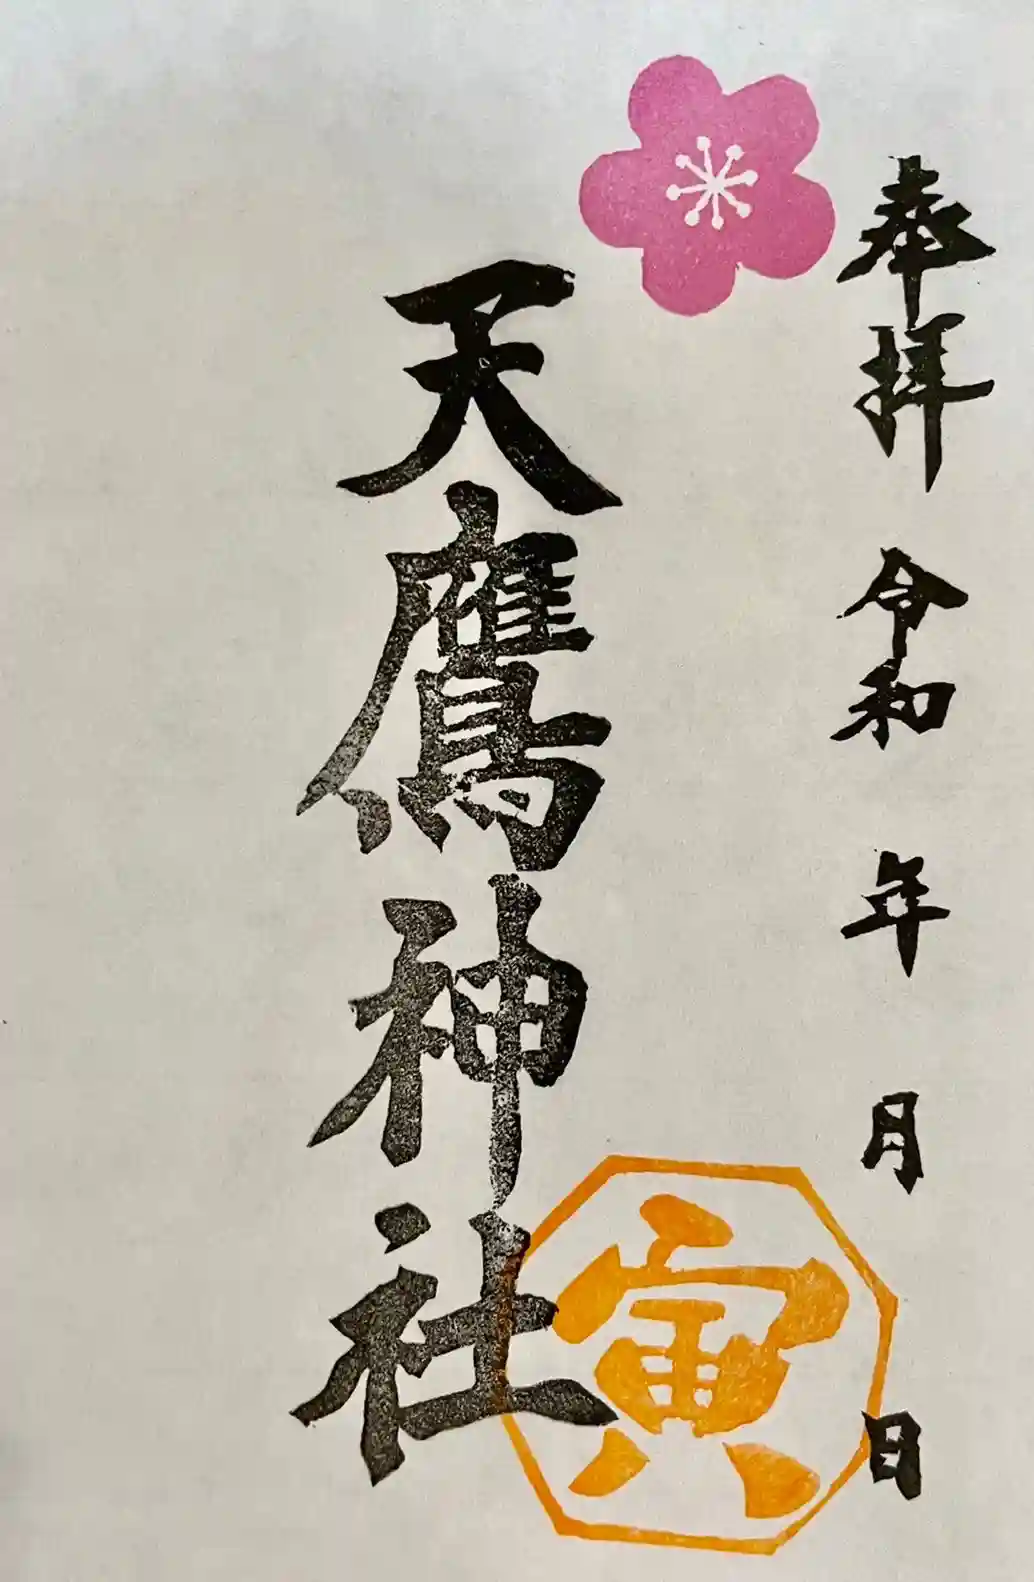 奉拝 令和 年 月 日
天鷹神社
寅